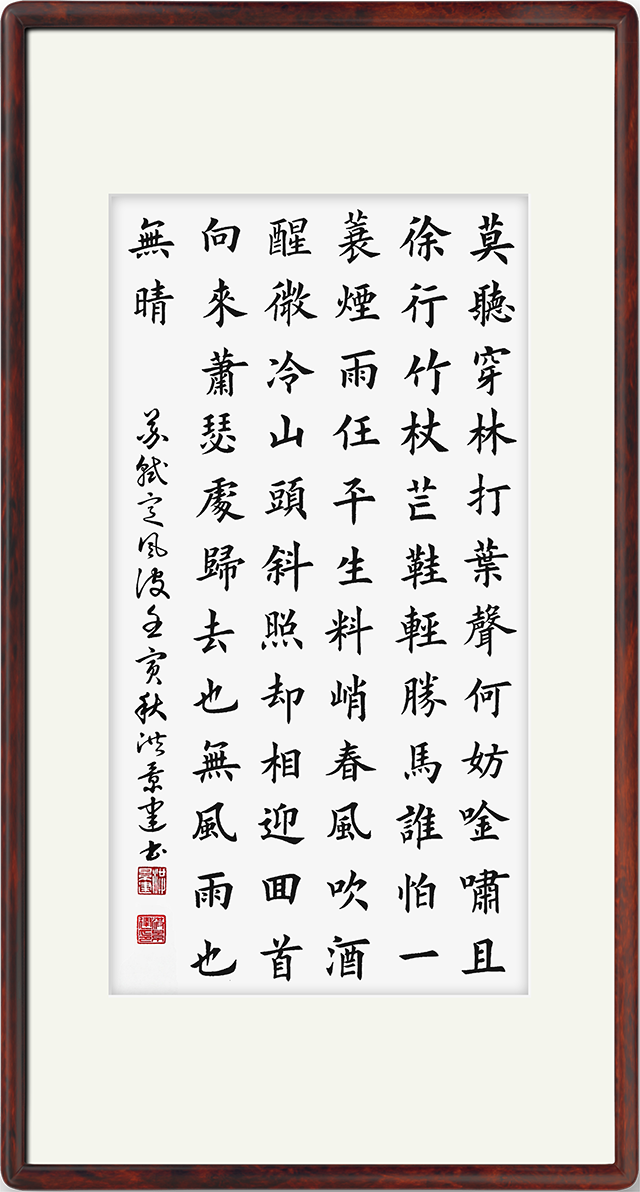 莫聽穿林打葉聲何妨唫嘯且
徐行竹杖芒鞋輕勝馬誰怕一
蓑煙雨任平生料峭春風吹酒
醒微冷山頭斜照却相迎囬首
向來蕭瑟處歸去也無風雨也
無晴
蘇軾定風波壬寅秋洪景建书